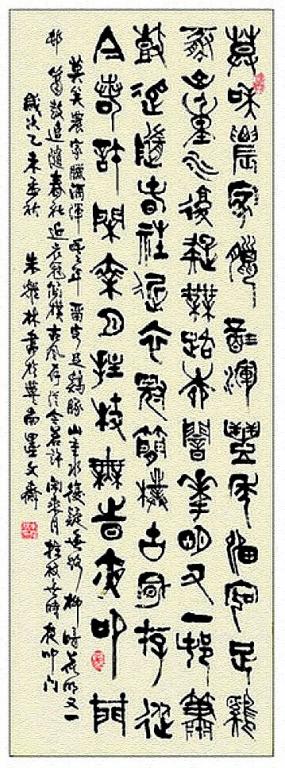 莫咲農家臘酒渾豐年留客足雞
豚山重水復疑無路柳暗華明又一邨簫
鼓追隨春社近衣冠簡樸古風存從
今若許閑乘月拄杖無時夜叩門
莫笑農家臘酒渾豐年留客足鷄豚山重水複疑無路柳暗花明又一
邨簫鼓追隨春社近衣冠簡樸古風存從今若許閑乘月拄杖無時夜叩門
歲次乙未季秋 朱林書於南墨文齋